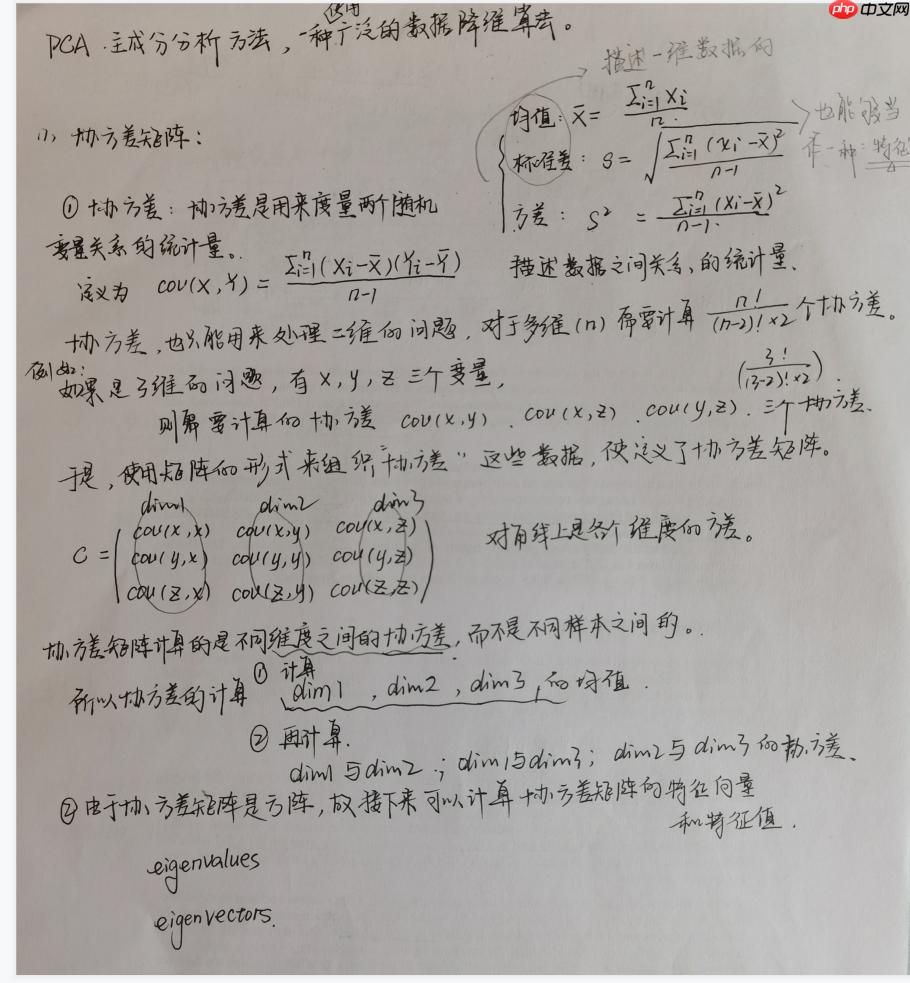 php 中文网
使用
PCA 主成分分析方法，一种广泛的数据降维算法。
描述一维数据的
均值: x̄ = Σⁿᵢ₌₁ Xi / n
标准差: S = √(Σⁿᵢ₌₁ (xi - x̄)² / n-1)
方差: S² = Σⁿᵢ₌₁ (Xi - x̄)² / n-1
也能够当
一种: 特征
(1) 协方差矩阵:
① 协方差: 协方差是用来度量两个随机
变量关系的统计量。
定义为 cov(X, Y) = Σⁿᵢ₌₁ (Xi - X̄)(Yi - Ȳ) / n-1
描述数据之间关系的统计量、
协方差，也只能用来处理二维的问题，对于多维(n)需要计算 n! / (n-2)!×2 个协方差。
例如:
如果是3维的问题，有 X, y, z 三个变量，
(3! / (3-2)!×2)
则需要计算的协方差 cov(x,y)、cov(x,z)、cov(y,z). 三个协方差、
于是，使用矩阵的形式来组织"协方差"这些数据，便定义了协方差矩阵。
dim1 dim2 dim3
cov(x,x) cov(x,y) cov(x,z)
C = cov(y,x) cov(y,y) cov(y,z)
cov(z,x) cov(z,y) cov(z,z)
对角线上是各个维度的方差。
协方差矩阵计算的是不同维度之间的协方差，而不是不同样本之间的。
所以协方差的计算 ① 计算
dim1 , dim2 , dim3, 的均值.
② 再计算.
dim1与dim2 ; dim1与dim3; dim2与dim3的协方差、
② 由于协方差矩阵是方阵，故接下来可以计算协方差矩阵的特征向量
和特征值.
eigenvalues
eigenvectors.